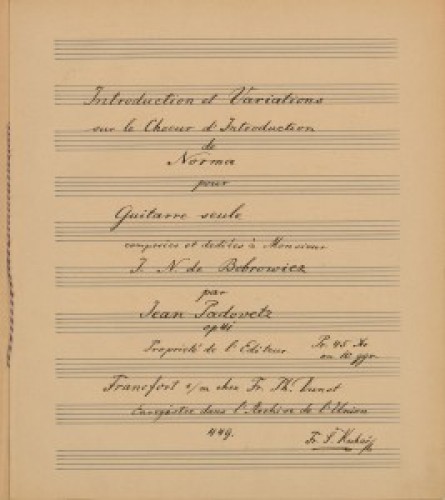 Introduction et Variations
sur le Choeur d'Introduction
de
Norma
pour
Guitarre seule
composées et dediées à Monsieur
J. N. de Bobrowicz
par
Jean Padovetz
op 41
Propriété de l'Editeur Pr. 45 Xr
ou 10 ggr.
Francfort s/m chez Fr. Th. Dunst
Enregistré dans l'Archive de l'Union
449.